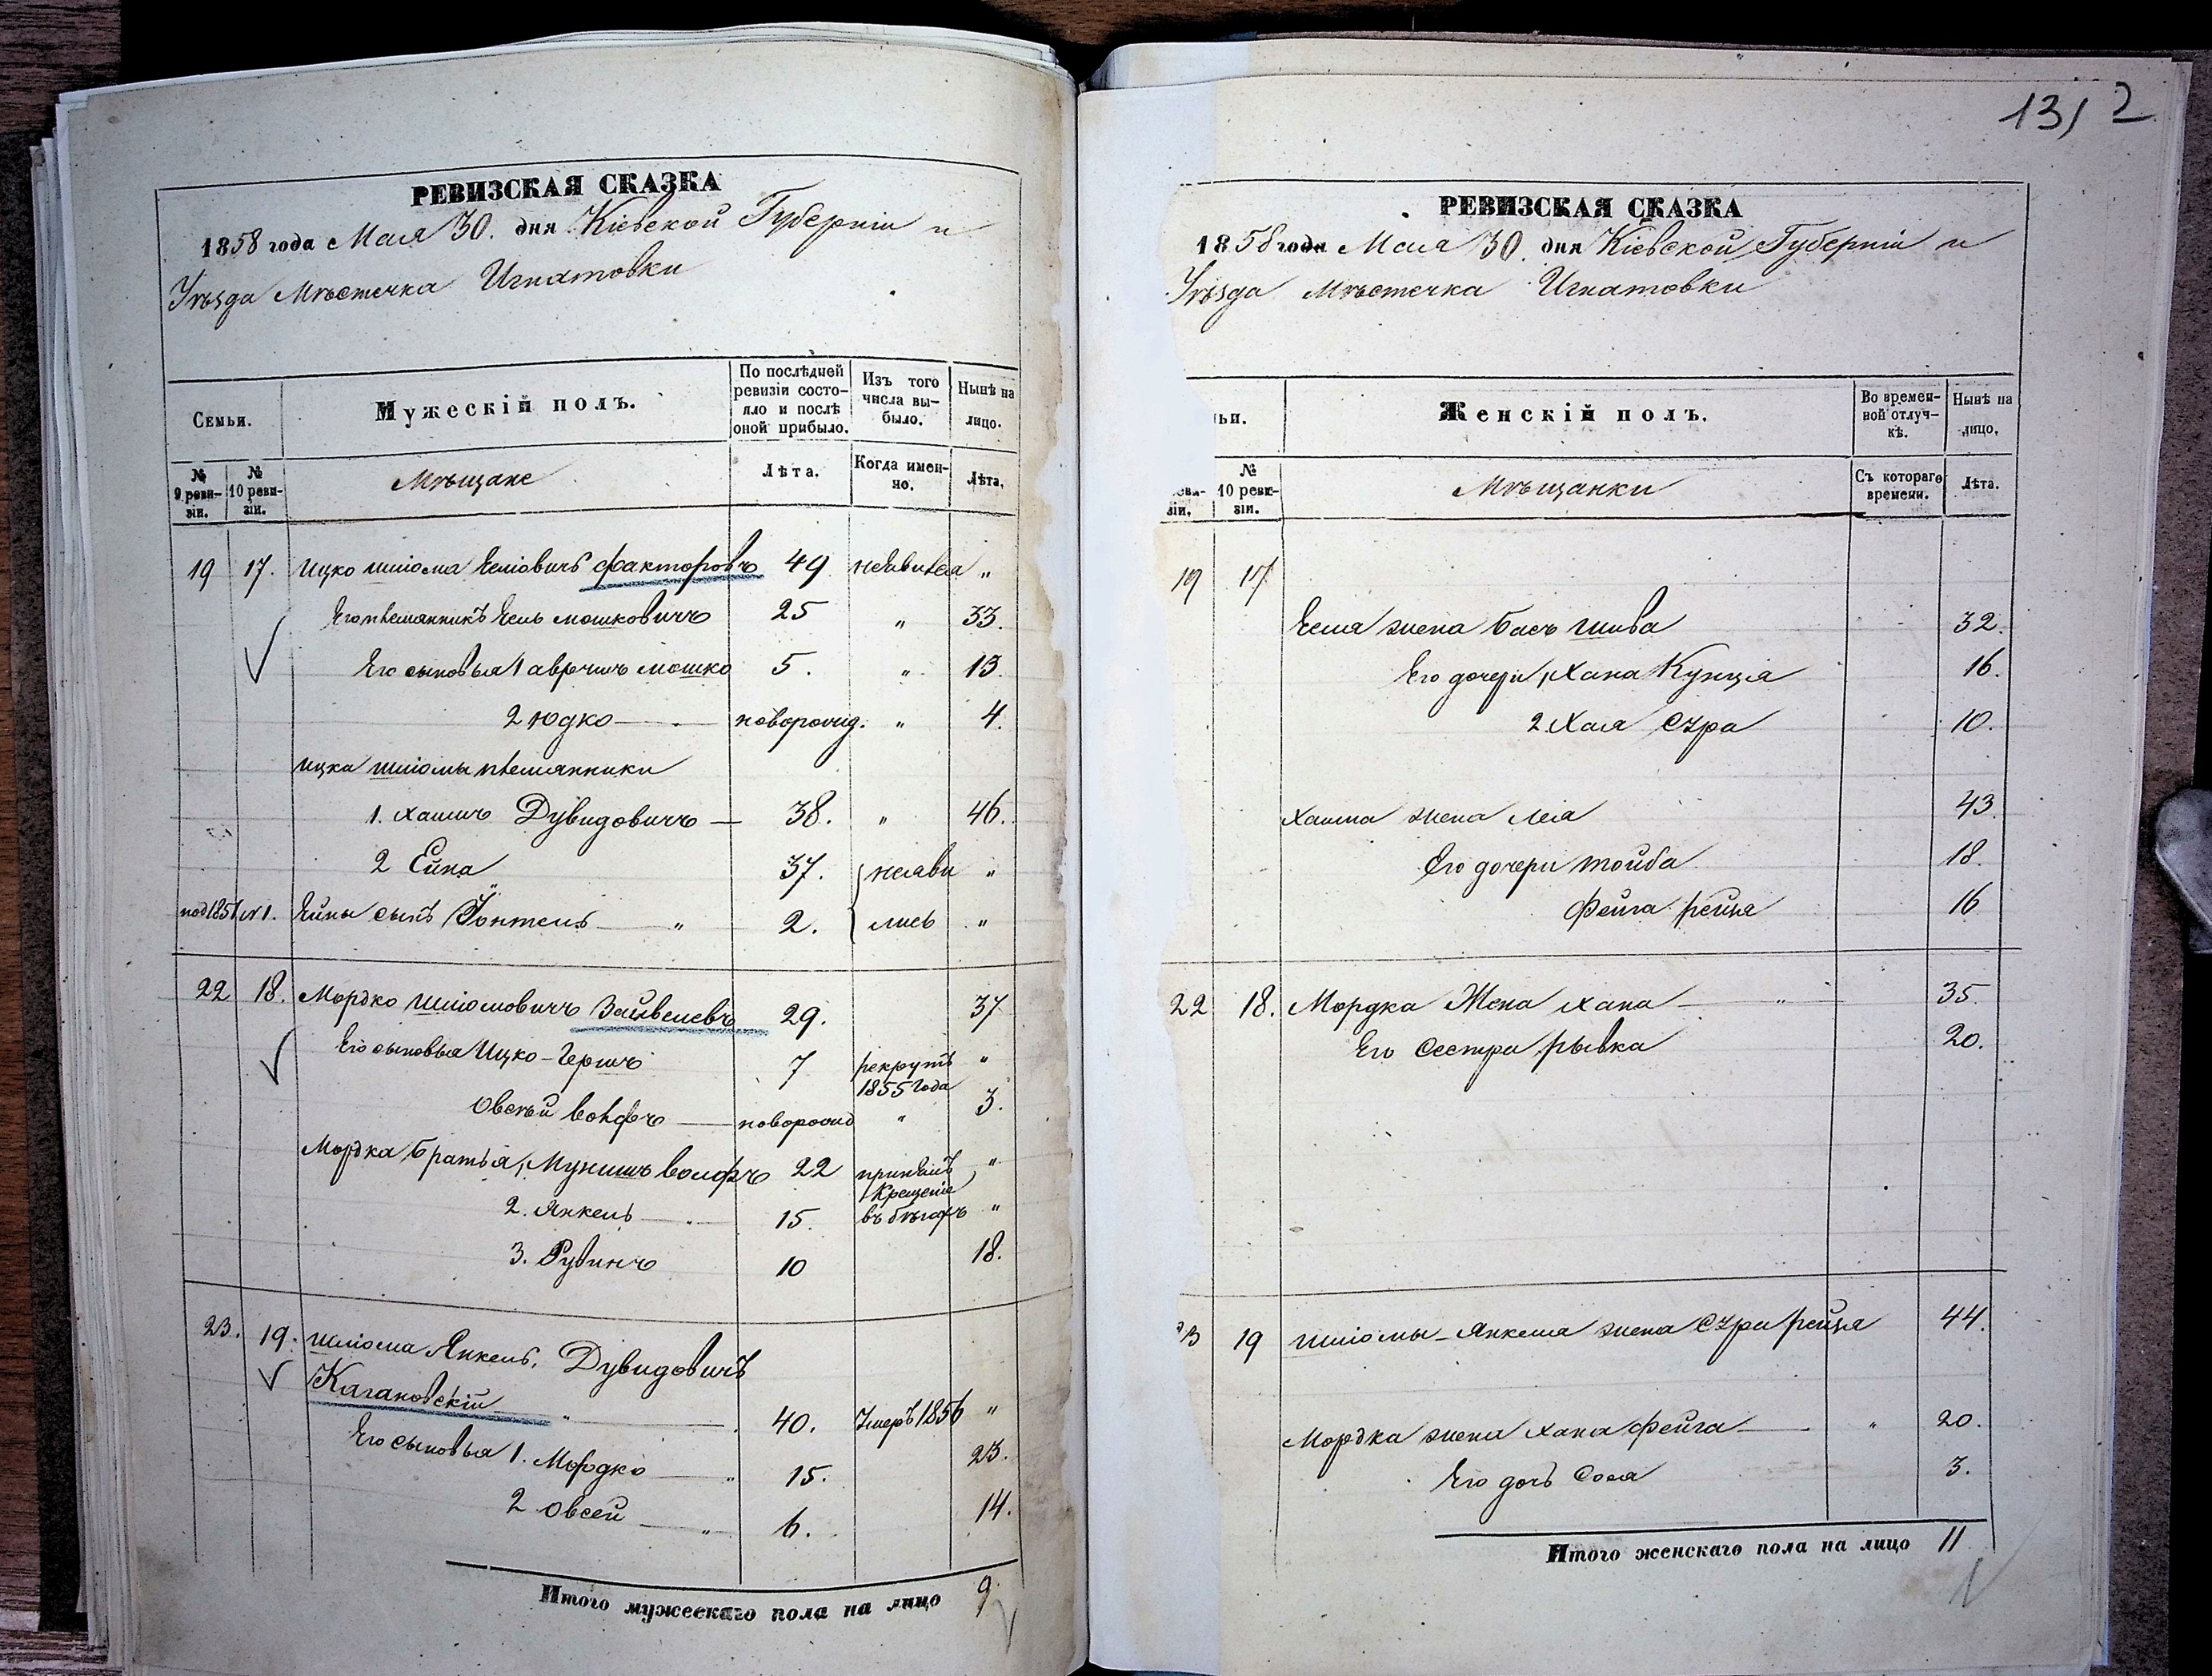 РЕВИЗСКАЯ СКАЗКА
1858 года Мая 30. дня Кіевской Губерніи и
Уѣзда Мѣстечка Игнатовки
Семьи.
Мужескій полъ.
По послѣдней ревизіи состояло и послѣ оной прибыло.
Изъ того числа выбыло.
Нынѣ на лицо.
№ 9 ревизіи.
№ 10 ревизіи.
Мѣщане
Лѣта.
Когда именно.
Лѣта.
19 17. Ицко Шліома Еліовичъ Факторовъ 49 неявился "
Его племянникъ Ель Мошковичъ 25 " 33.
Его сыновья 1 Мошко 5. " 13.
2 Юдко — новорожд. " 4.
Ицка Шліомы племянники
1. Хаимъ Дувидовичъ — 38. " 46.
2 Ейна 37. неяви "
под 1851 № 1. Ейны сынъ — " 2. лись "
22 18. Мордко Шліомовичъ Зайвелевъ 29. 37
Его сыновья Ицко-Гершъ 7 рекрутъ 1855 года "
Овсѣй Волфъ — новорожд " 3.
Мордка братья, Мунишъ Волфъ 22 принялъ Крещеніе "
2. Янкель — 15. въ бѣгахъ "
3. Рувинъ 10 18.
23. 19. Шліома Янкель. Дувидовичъ
Кагановскій " — 40. Умеръ 1856 "
Его сыновья 1. Мордко — " 15. 23.
2 Овсей — " 6. 14.
Итого мужескаго пола на лицо 9
13/ 2
РЕВИЗСКАЯ СКАЗКА
1858 года Мая 30. дня Кіевской Губерніи и
Уѣзда Мѣстечка Игнатовки
ьи.
Женскій полъ.
Во временной отлучкѣ.
Нынѣ на лицо.
№ 10 ревизіи.
Мѣщанки
Съ котораго времени.
Лѣта.
19 17
Еля жена Бася Шива 32.
Его дочери, Хана Кунця 16.
2. Хая Сура 10.
Хаима жена Леія 43.
Его дочери Тойба 18.
Фейга Рейзя 16
22 18. Мордка Жена Хана — " — 35.
Его Сестра Рывка 20.
3 19 Шліомы-Янкеля жена Сура Рейзя 44.
Мордка жена Хана Фейга — " 20.
Его дочь Сося 3.
Итого женскаго пола на лицо 11